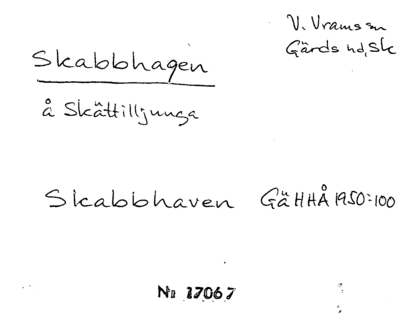 V. Vrams sn
Gärds hd, Sk
Skabbhagen
å Skättilljunga
Skabbhaven GäHHÅ 1950:100
№ 17067